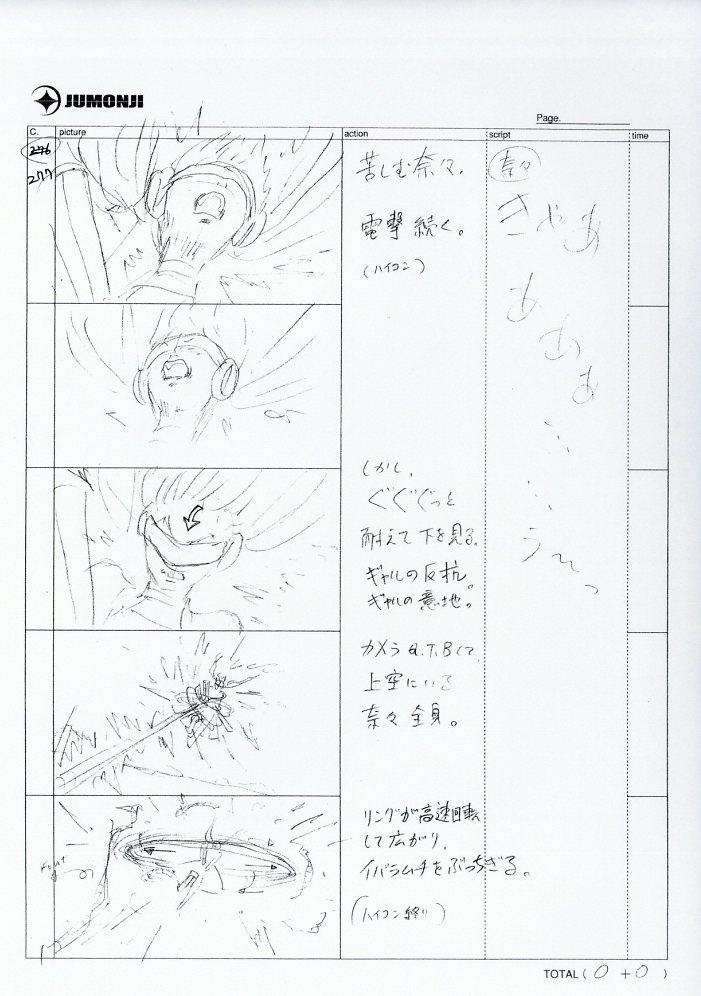 JUMONJI
Page.
C.
picture
action
script
time
276
277
苦しむ奈々。
電撃続く。
(ハイコン)
奈々
きゃぁ
あ
あ
ぁ
しかし、
ぐぐぐっと
耐えて下を見る。
ギャルの反抗。
ギャルの意地。
カメラQ.T.Bして、
上空にいる
奈々全身。
リングが高速回転
して広がり、
イバラムチをぶっちぎる。
(ハイコン終り)
TOTAL ( 0 + 0 )